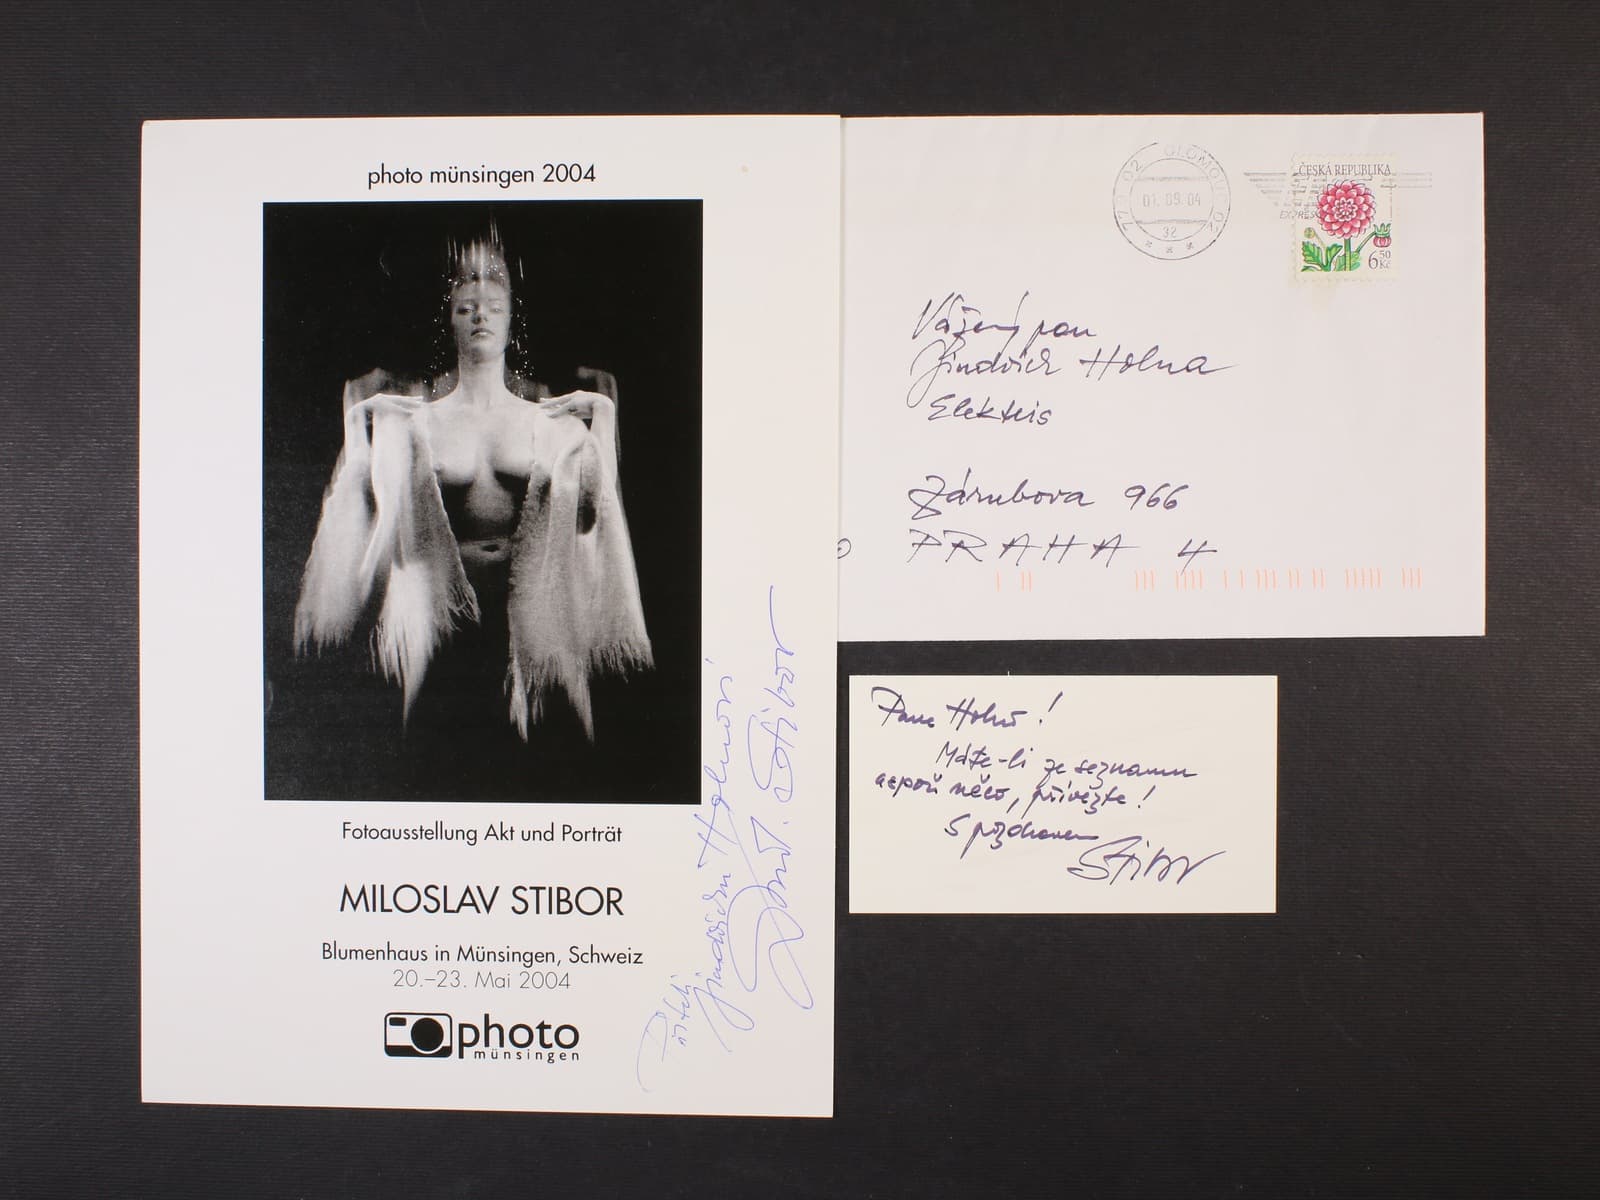 photo münsingen 2004
Fotoausstellung Akt und Porträt
MILOSLAV STIBOR
Blumenhaus in Münsingen, Schweiz
20.–23. Mai 2004
photo
münsingen
Příteli
Jindřichu Holnovi
Stibor
OLOMOUC
01.09.04
32
ČESKÁ REPUBLIKA
6 50 Kč
Vážený pan
Jindřich Holna
Zárubova 966
PRAHA 4
Pane Holno!
Máte-li ze seznamu
aspoň něco, přivezte!
S pozdravem
Stibor